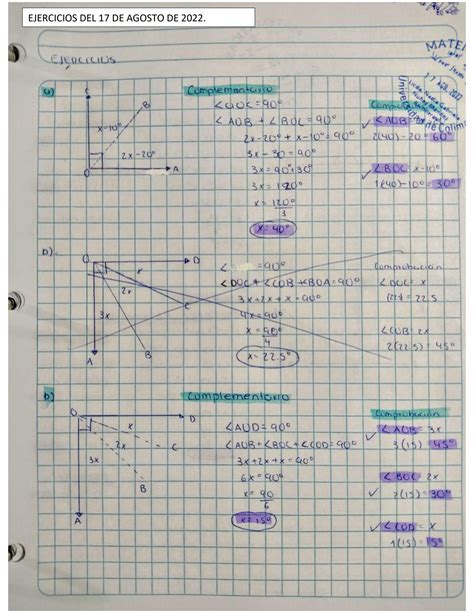 EJERCICIOS DEL 17 DE AGOSTO DE 2022.
MATE
EJERCICIOS
17 AGO. 2022
a)
Complementario
C
∠AOC=90°
∠AOB + ∠BOC = 90°
2x-20°+x-10°=90°
3x-30=90°
3x=90°+30°
3x=120°
x=120°
3
x=40°
B
x-10°
2x-20°
O
A
∠AOB
2(40)-20=60°
∠BOC x-10°
1(40)-10°=30°
b).
O
D
x
2x
3x
C
B
A
∠ =90°
∠DOC+∠COB+BOA=90°
3x+2x+x=90°
4x=90°
x=90°
4
x=22.5°
Comprobación
∠DOC=x
=22.5
∠COB=2x
2(22.5)=45°
b)
Complementario
O
D
x
2x
C
3x
B
A
∠AOD=90°
∠AOB+∠BOC+∠COD=90°
3x+2x+x=90°
6x=90°
x=90
6
x=15°
Comprobación
∠AOB=3x
3(15)=45°
∠BOC 2x
2(15)=30°
∠COD=x
1(15)=15°